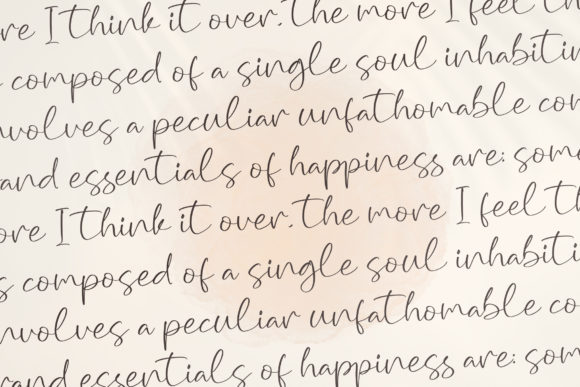 re I think it over. The more I feel th
composed of a single soul inhabitin
nvolves a peculiar unfathomable con
and essentials of happiness are: some
ore I think it over. The more I feel th
s composed of a single soul inhabiti
nvolves a peculiar unfathomable co
rand essentials of happiness are: som